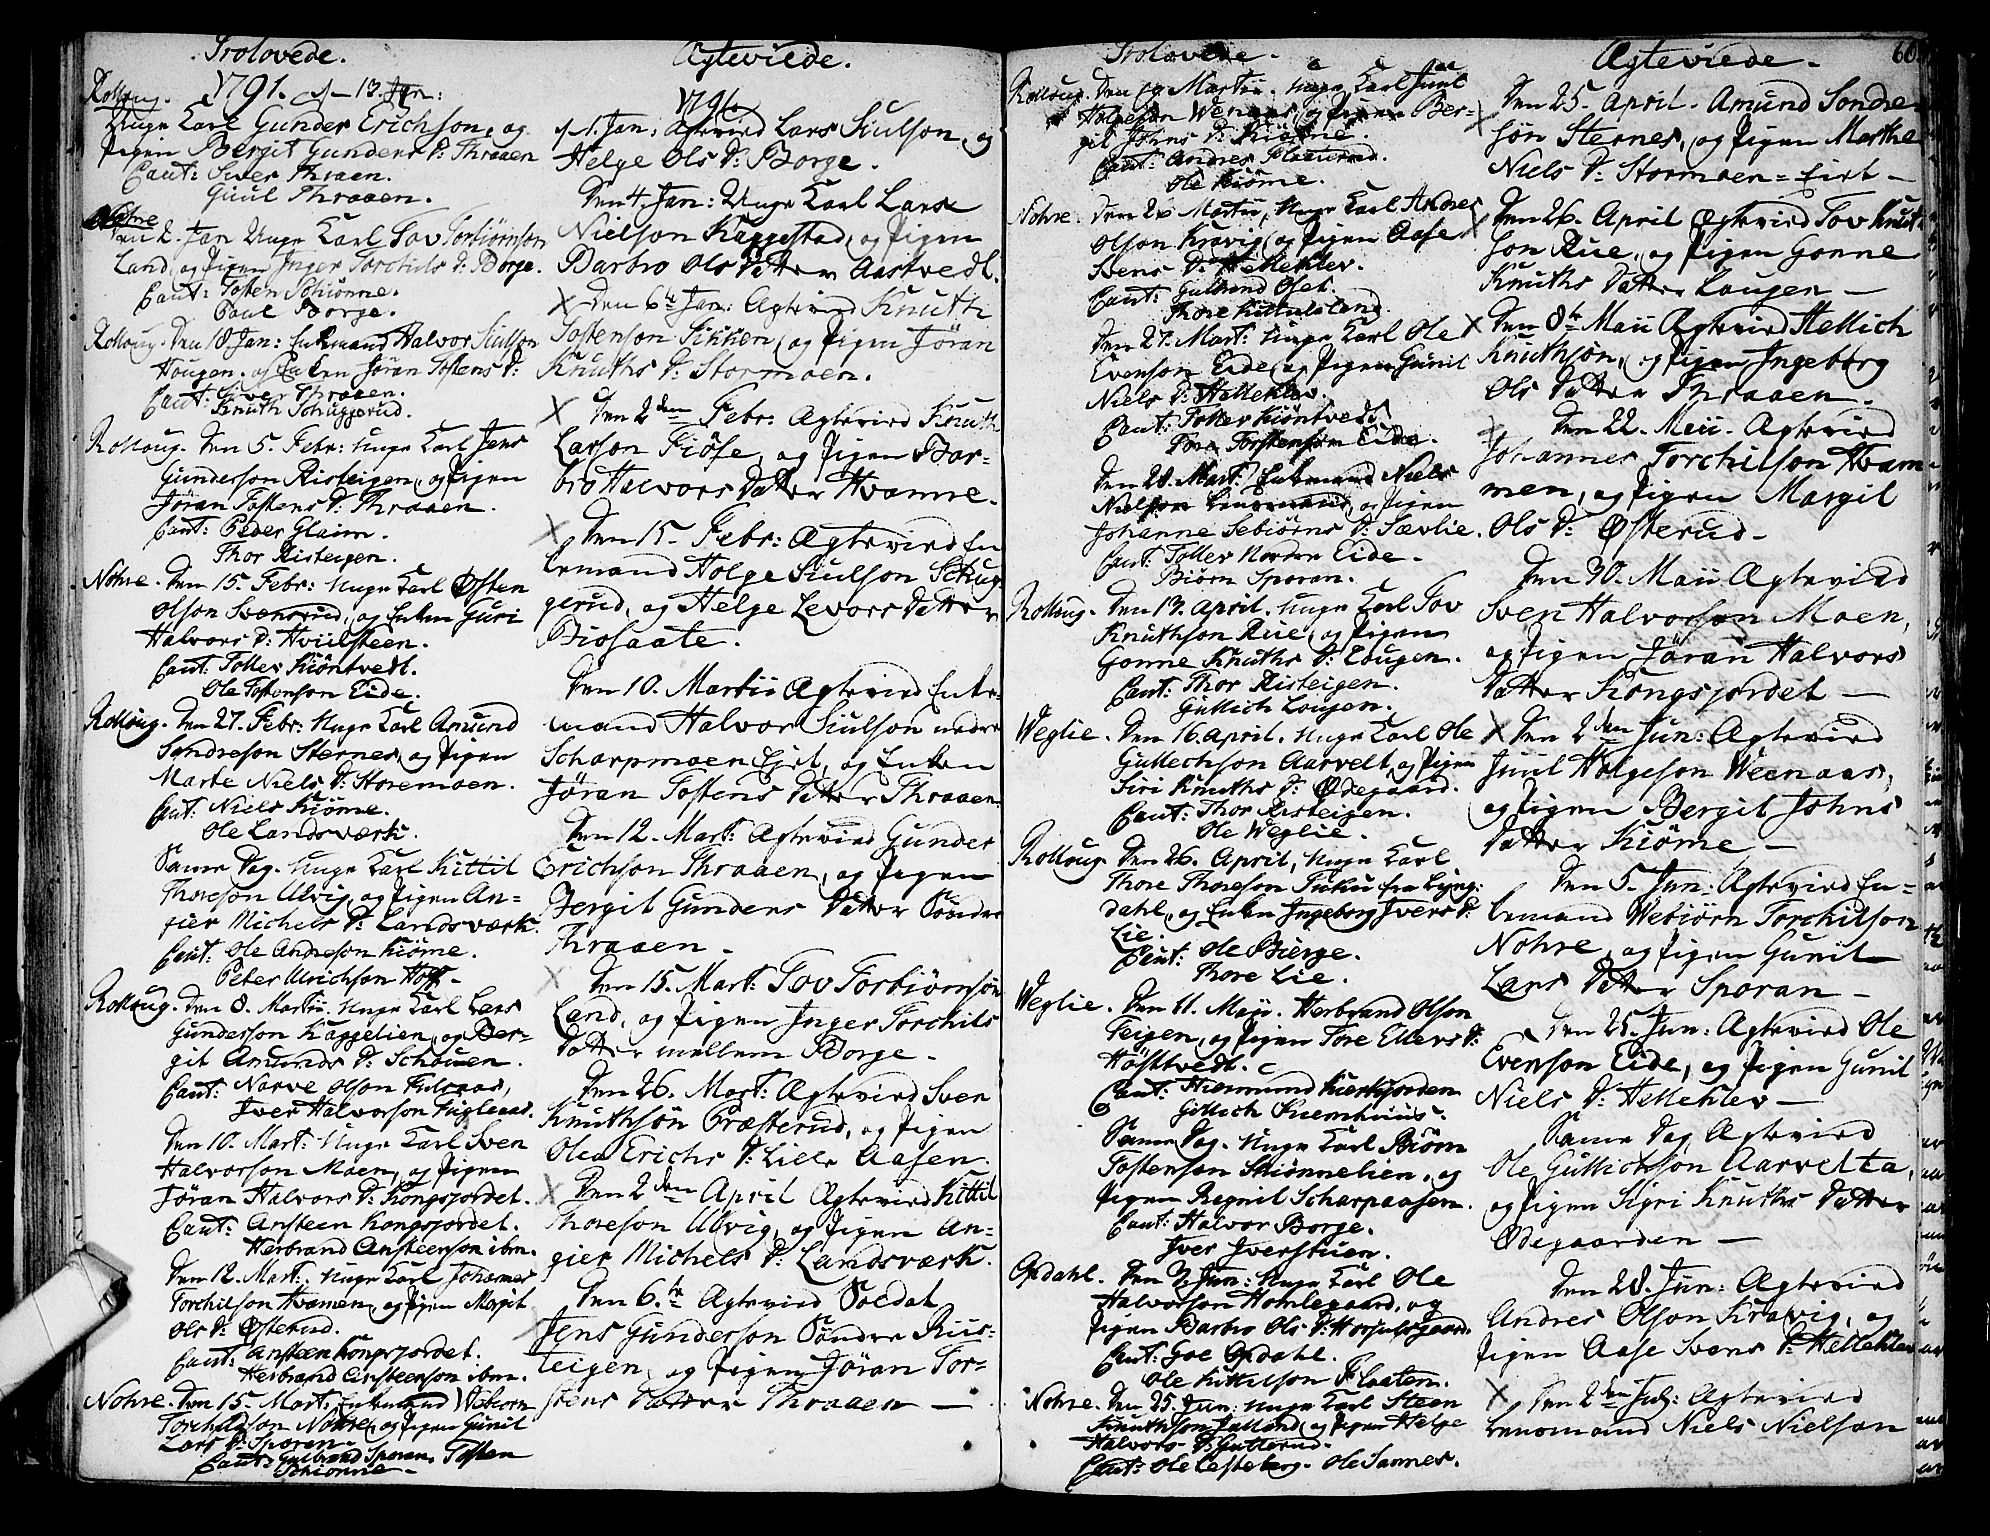 Trolovede.
1791. d. 13. Jan:
Rolloug.
Unge Karl Gunder Erichson, og
Pigen Bergit Gunders D: Thraaen
Caut: Siver Thraaen.
Guul Thraaen.
Nohre
Den 2. Jan Unge Karl Tov Torbiörnson
Land, og Pigen Inger Torchils D: Borge.
Caut: Tosten Schiönne.
Paul Borge.
Rolloug. Den 18 Jan: Enkemand Halvor Siulson
Hougen. og Enken Jöran Tostens D:
Caut: Siver Thraaen.
Knuth Schuggerud.
Rolloug. Den 5. Febr: Unge Karl Jens
Gunderson Risteigen, og Pigen
Jöran Tostens D: Thraaen.
Caut: Peder Glaim.
Thor Risteigen.
Nohre. Den 15. Febr: Unge Karl Østen
Olson Svensrud, og Enken Guri
Halvors D: Hviilsteen.
Caut: Tollev Kiöntvedt.
Ole Tostenson Eide.
Rolloug. Den 27. Febr: Unge Karl Amund
Sondreson Sternes, og Pigen
Marte Niels D: Storemoen.
Caut: Niels Kiöme.
Ole Landsværk.
Same Dag. Unge Karl Kittil
Thoreson Ulvig, og Pigen An-
gier Michels D: Landsværk.
Caut: Ole Andreson Kiöme.
Peter Ulrichson Hoff.
Rolloug. Den 8. Martii. Unge Karl Lars
Gunderson Kaggelien, og Ber-
git Amunds D: Schouen.
Caut: Narve Olson
Iver Halvorson Fugleaas.
Den 10. Mart: Unge Karl Sven
Halvorson Moen, og Pigen
Jöran Halvors D: Kongsjordet.
Caut: Ansteen Kongsjordet.
Herbrand Ansteenson ibm.
Den 12. Mart: Unge Karl Johannes
Torchilson Hvamen, og Pigen Margit
Ols D: Østerud.
Caut: Ansteen Kongsjordet.
Herbrand Ansteenson ibm.
Nohre. Den 15. Mart: Enkemand Webiörn
Torchilson Nohre, og Pigen Gunil
Lars D: Sporan.
Caut: Gulbrand Sporan, Tosten
Schiönne.
Ægteviede.
1791.
d. 1. Jan: Ægteviid Lars Siulson, og
Helge Ols D: Borge.
Den 4. Jan: Unge Karl Lars
Nielson Kaggestad, og Pigen
Barbro Ols Datter Aastvedt.
Den 6te Jan: Ægteviid Knuth
Tostenson Sikken, og Pigen Jöran
Knuths D: Stormoen.
Den 2den Febr: Ægteviid Knuth
Larson Fiöse, og Pigen Bar-
bro Halvors Datter Hvamme.
Den 15. Febr: Ægteviid En-
kemand Holge Siulson Schug-
gerud, og Helge Levors Datter
Biosaate.
Den 10. Martii Ægteviid Enke-
mand Halvor Siulson nedre
Scharpmoen Ejet, og Enken
Jöran Tostens Datter Thraaen.
Den 12. Mart: Ægteviid Gunder
Erichson Thraaen, og Pigen
Bergit Gunders Datter Söndre
Thraaen.
Den 15. Mart: Tov Torbiörnsön
Land, og Pigen Inger Torchils
Datter mellem Borge.
Den 26. Mart: Ægteviid Sven
Knuthsön Præsterud, og Pigen
Olea Erichs D: Lille Aasen.
Den 2den April Ægteviid Kittil
Thoreson Ulvig, og Pigen An-
gier Michels D: Landsværk.
Den 6te Ægteviid Soldat
Jens Gunderson Söndre Riis-
teigen, og Pigen Jöran Tor-
stens Datter Thraaen
Trolovede.
Rolloug. Den Martii. Unge Karl Juul
Holgeson Wenaas, og Pigen Ber-
git Johns D: Kiöme.
Caut: Andres Flaaterud.
Ole Kiöme.
Nohre. Den 20 Martii, Unge Karl Andres
Olson Kravig, og Pigen Aase
Svens D: Hellehlev.
Caut: Gulbrand Øset.
Thore Kittulsland
Den 27. Mart: Unge Karl Ole
Evenson Eide, og Pigen Gunil
Niels D: Hellehlev.
Caut: Tollev Kiöntvedt
Tore Torstenson Eide.
Den 28. Mart: Enkemand Niels
Nielson og Pigen
Johanne Sebiörns D: Sævlie.
Caut: Tollev Norden Eide.
Biörn Sporan.
Rolloug. Den 13. April. Unge Karl Tov
Knuthson Rue, og Pigen
Gonne Knuths D: Lougen.
Caut: Thor Risteigen.
Gullich Lougen.
Weglie. Den 16. April. Unge Karl Ole
Gullechson Aarvelt, og Pigen
Siri Knuths D: Ødegaard.
Caut: Thor Risteigen.
Ole Weglie.
Rolloug. Den 26. April, Unge Karl
Thore Thoreson Fuku fra Lyng-
dahl, og Enken Ingeborg Ivers D:
Lie.
Caut: Ole Bierge.
Thore Lie.
Weglie. Den 11. Maii. Herbrand Olson
Teigen, og Pigen Tore Ellevs D:
Høstvedt.
Caut: Hermund Kierkjorden
Gullich Kuemhuus.
Same Dag. Unge Karl Biörn
Tostenson Skiönnelien, og
Pigen Regnil Scharpaasen.
Caut: Halvor Borge.
Iver Iverstuen.
Opdahl. Den 3. Jun: Unge Karl Ole
Halvorson Homlegaard, og
Pigen Barbro Ols D: Horsulsgaard.
Caut: Goe Opdahl.
Ole Kittilson Flaaten.
Nohre. Den 25. Jun: Unge Karl Steen
Knuthson Jalland, og Pigen Helge
Halvors D: Gutterud.
Caut: Ole Lesteberg. Ole Sannes.
Ægteviede.
66
Den 25. April. Amund Sondre-
sön Sternes, og Pigen Marthe
Niels D: Stormoen = Eiet
Den 26. April Ægteviid Tov Knut-
son Rue, og Pigen Gonne
Knuths Datter Lougen
Den 8de Maii Ægteviid Hellich
Knuthsön, og Pigen Ingeborg
Ols Datter Thraaen.
Den 22. Maii. Ægteviid
Johannes Torchilson Hvam-
men, og Pigen Margit
Ols D: Østerud
Den 30. Maii Ægteviid
Sven Halvorson Moen,
og Pigen Jöran Halvors
Datter Kongsjordet
Den 2den Jun: Ægteviid
Juul Holgeson Weenaas,
og Pigen Bergit Johns
Datter Kiöme
Den 5. Jun: Ægteviid En-
kemand Webiörn Torchilson
Nohre, og Pigen Gunil
Lars Datter Sporan
Den 25. Jun: Ægteviid Ole
Evenson Eide, og Pigen Gunil
Niels D: Hellehlev
Same Dag Ægteviid
Ole Gullichson Aarvelta,
og Pigen Sigri Knuths Datter
Ødegaarden
Den 28. Jun: Ægteviid
Andres Olson Kravig, og
Pigen Aase Svens D: Hellehlev
Den 2den Jul: Ægteviid
Niels Nielson